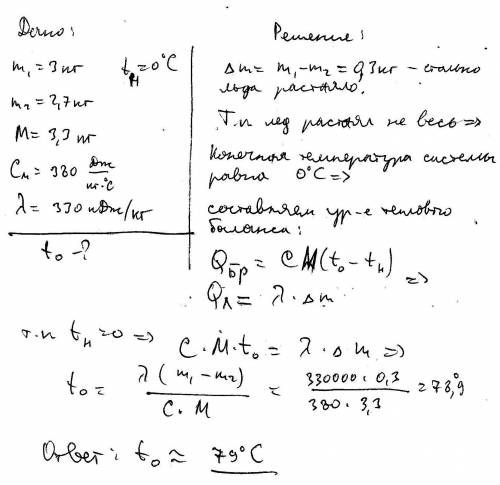 Дано:
m₁ = 3 кг t_н = 0°C
m₂ = 2,7 кг
M = 3,3 кг
C_м = 380 Дж/кг·°C
λ = 330 кДж/кг
t₀ - ?
Решение:
Δm = m₁ - m₂ = 0,3 кг - столько
льда растаяло.
Т.к лед растаял не весь =>
Конечная температура системы
равна 0°C =>
составляем ур-е теплового
баланса:
Q_бр = CM(t₀ - t_н)
=>
Q_л = λ · Δm
т.к t_н = 0 => C · M · t₀ = λ · Δm =>
t₀ = λ(m₁ - m₂) / C · M = 330000 · 0,3 / 380 · 3,3 = 78,9°
Ответ: t₀ ≈ 79°C